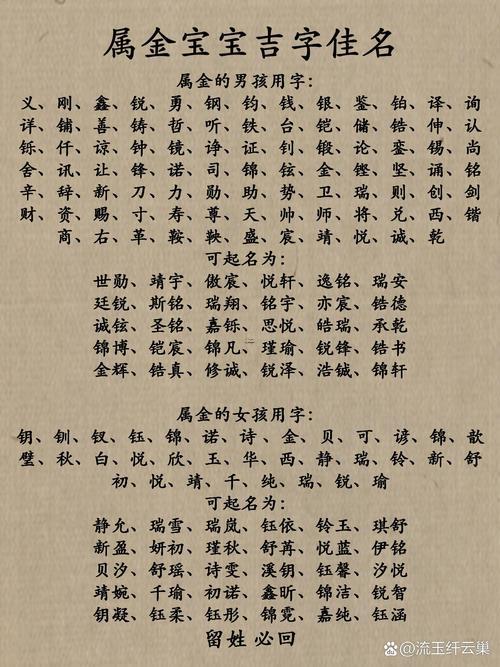 属金宝宝吉字佳名
属金的男孩用字:
义、刚、鑫、锐、勇、钢、钧、钱、银、鉴、铂、译、询
详、铺、善、铸、哲、听、铁、台、铠、储、锆、伸、认
铄、仟、谅、钟、镜、诤、证、钊、锻、论、銮、锡、尚
舍、讯、让、锋、诺、司、锦、铉、金、铿、坚、诵、铭
辛、辞、新、刀、力、勋、助、势、卫、瑞、则、创、剑
财、资、赐、寸、寿、尊、天、帅、师、将、兑、西、锴
商、右、革、鞍、鞅、盛、宸、靖、悦、诚、乾
可起名为:
世勋、靖宇、傲宸、悦轩、逸铭、瑞安
廷锐、斯铭、瑞翔、铭宇、亦宸、锆德
诚铉、圣铭、嘉铄、思悦、皓瑞、承乾
锦博、铠宸、锦凡、瑾瑜、锐锋、锆书
金辉、锆真、修诚、锐泽、浩铖、锦轩
属金的女孩用字:
钥、钏、钗、钰、锦、诺、诗、金、贝、可、谚、锦、歆
璧、秋、白、悦、欣、玉、华、西、静、瑞、铃、新、舒
初、悦、靖、千、纯、瑞、锐、瑜
可起名为:
静允、瑞雪、瑞岚、钰依、铃玉、琪舒
新盈、妍初、瑾秋、舒苒、悦蓝、伊铭
贝汐、舒瑶、诗雯、溪钥、钰馨、汐悦
靖婉、千瑜、初诺、鑫昕、锦洁、锐智
钥凝、钰柔、钰彤、锦霓、嘉纯、钰涵
留姓必回
流玉纤云巢